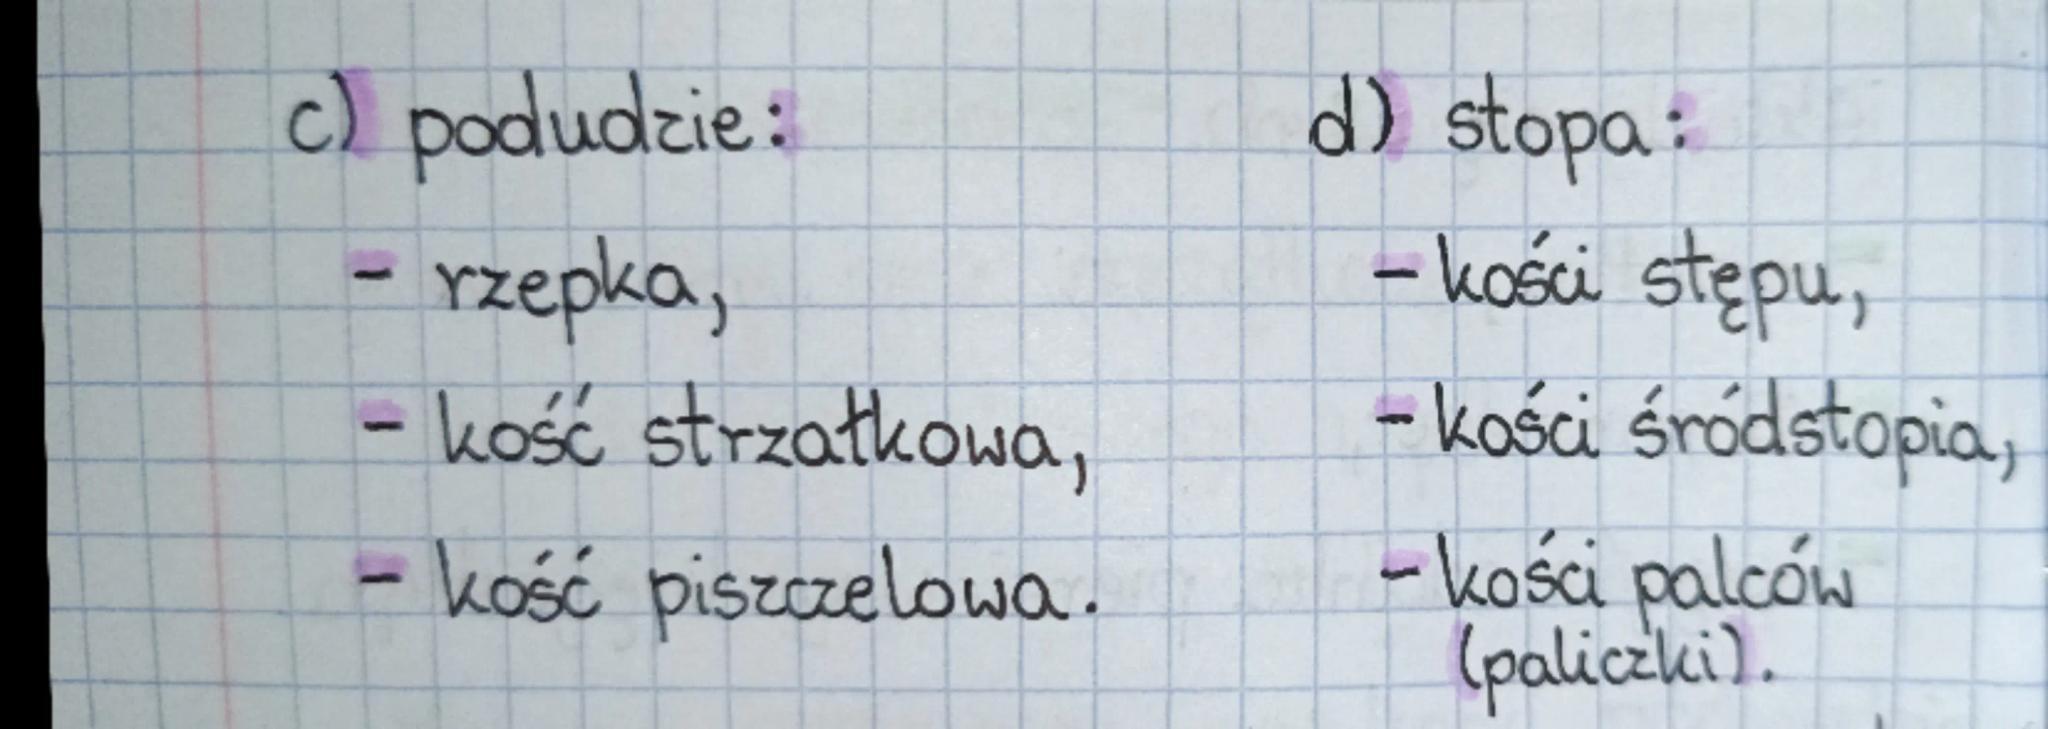 c) podudzie:
- rzepka,
- kość strzałkowa,
- kość piszczelowa.
d) stopa:
- kości stępu,
- kości śródstopia,
- kości palców
(paliczki).